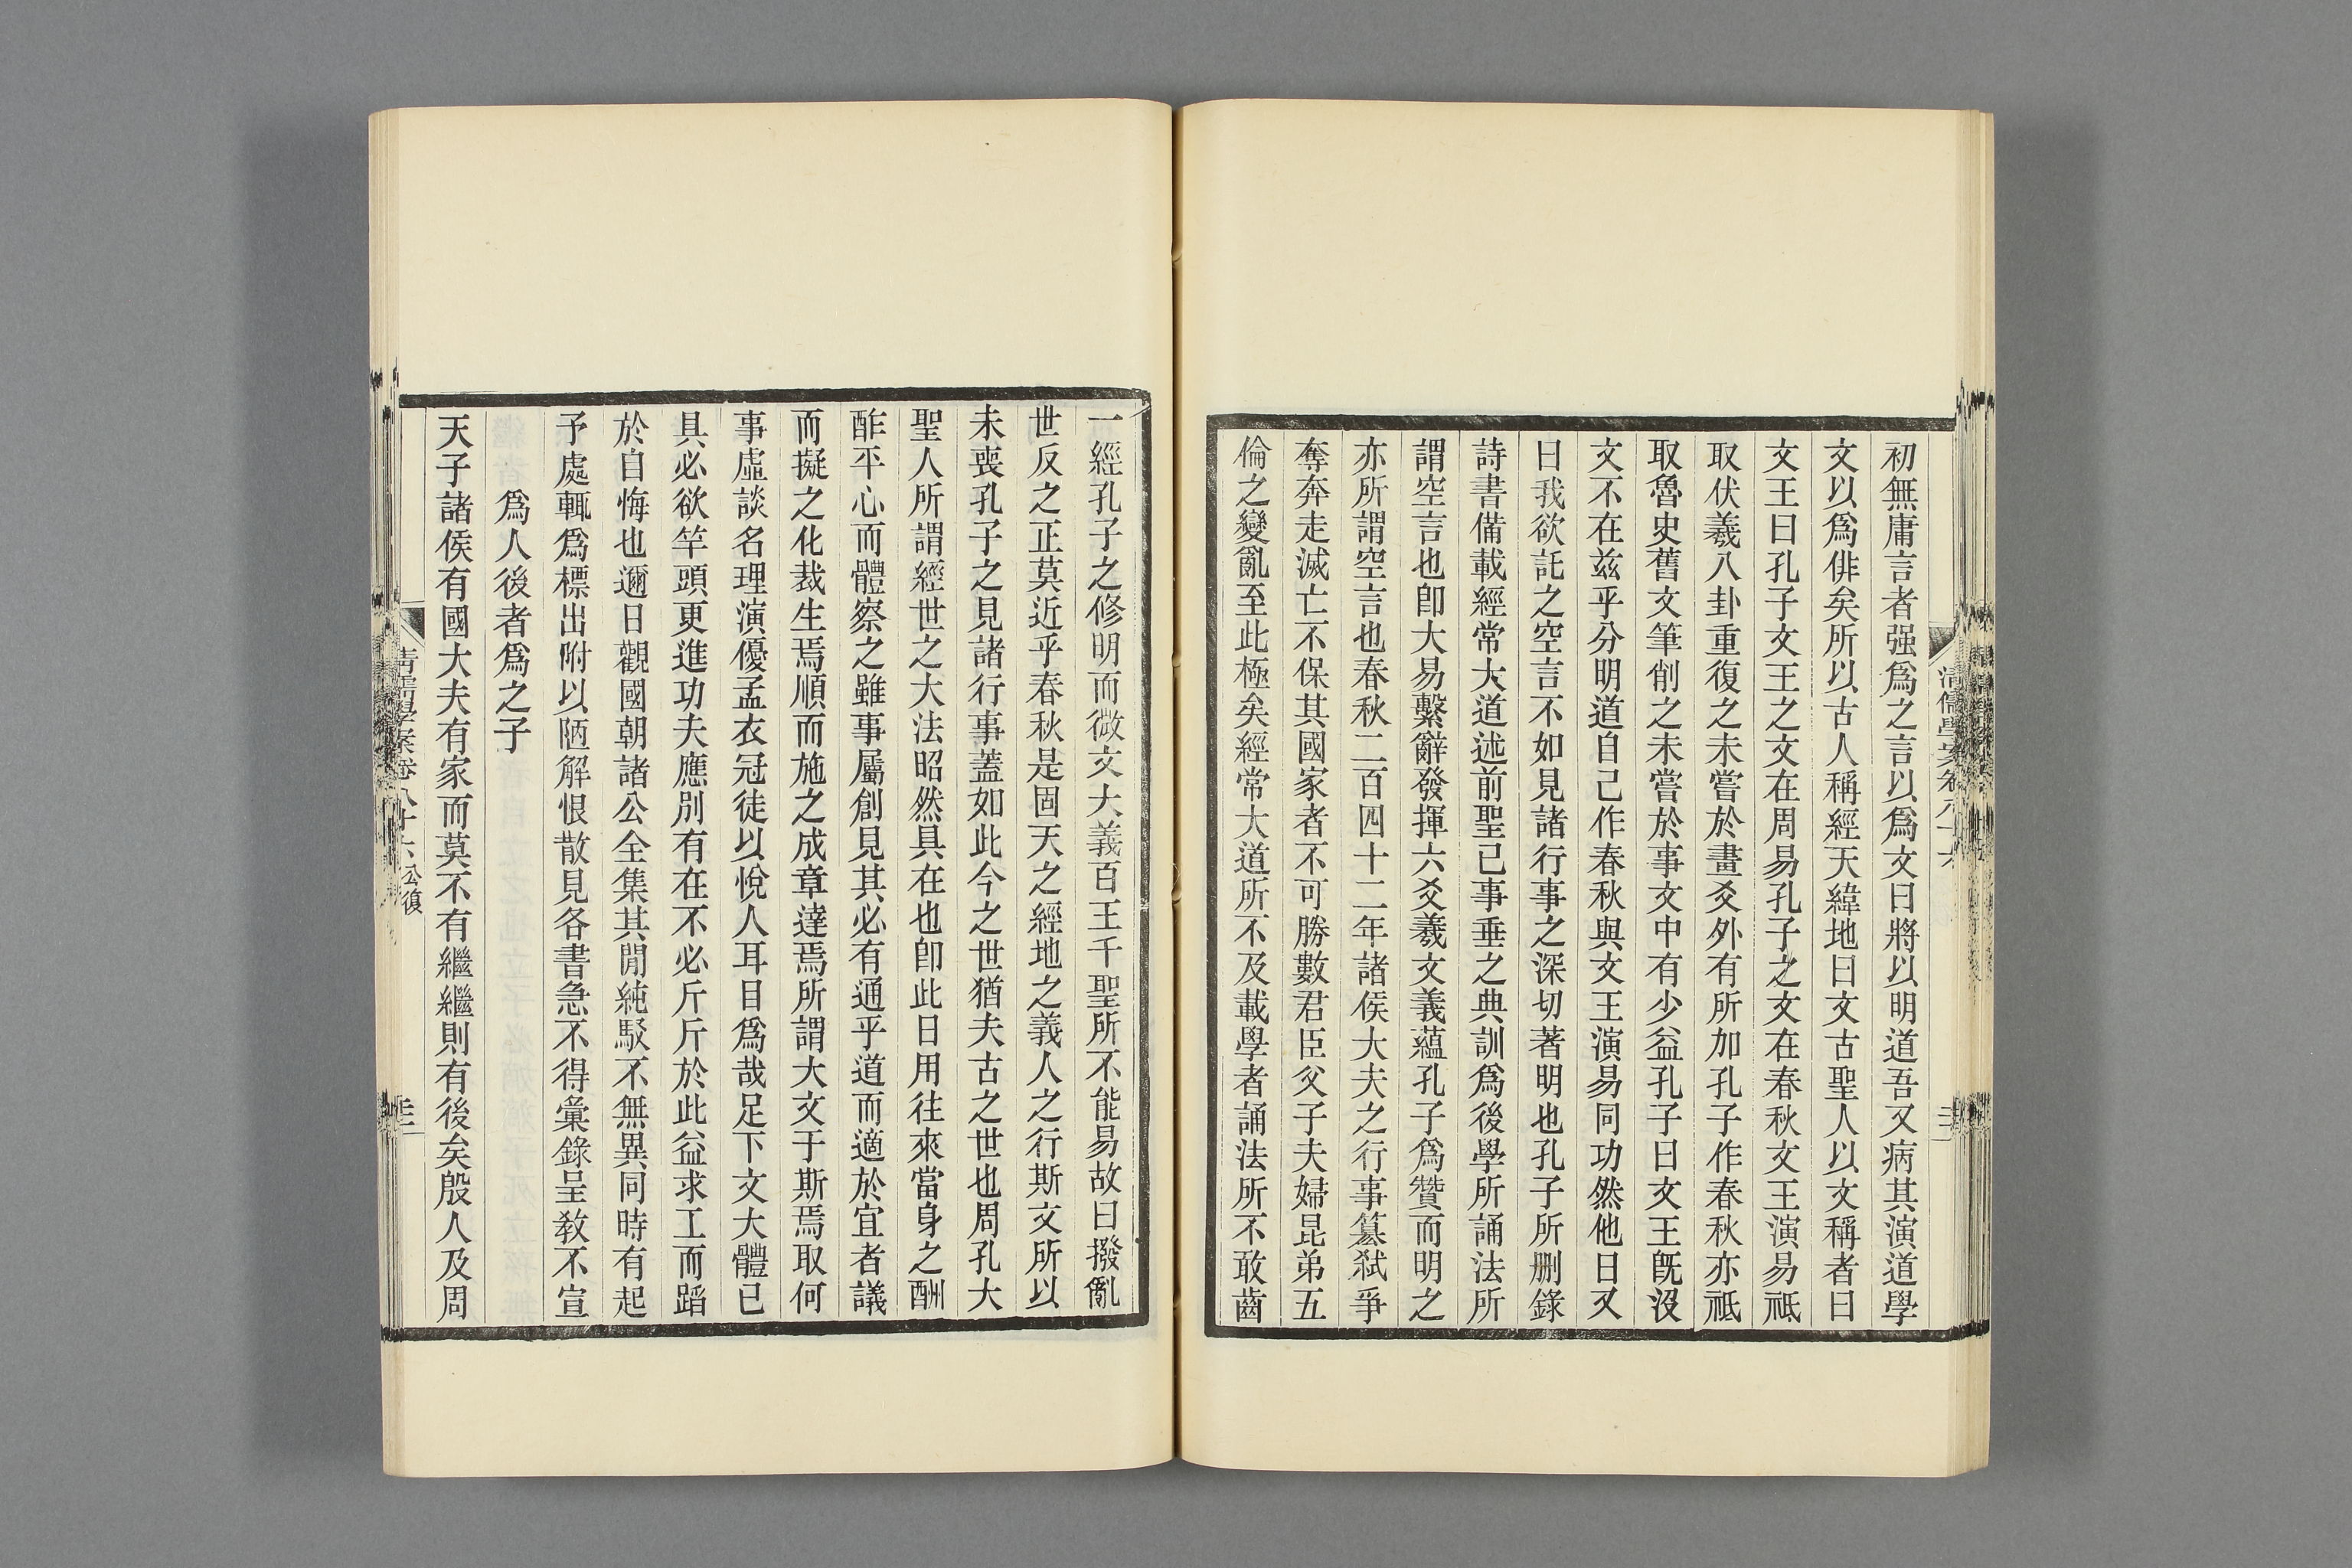 初無庸言者强爲之言以爲文曰將以明道吾又病其演道學
文以爲俳矣所以古人稱經天緯地曰文古聖人以文稱者曰
文王曰孔子文王之文在周易孔子之文在春秋文王演易祗
取伏羲八卦重復之未嘗於畫爻外有所加孔子作春秋亦祗
取魯史舊文筆削之未嘗於事文中有少益孔子曰文王旣沒
文不在兹乎分明道自己作春秋與文王演易同功然他日又
曰我欲託之空言不如見諸行事之深切著明也孔子所删錄
詩書備載經常大道述前聖已事垂之典訓爲後學所誦法所
謂空言也卽大易繫辭發揮六爻羲文義蘊孔子爲贊而明之
亦所謂空言也春秋二百四十二年諸侯大夫之行事篡弒爭
奪奔走滅亡不保其國家者不可勝數君臣父子夫婦昆弟五
倫之變亂至此極矣經常大道所不及載學者誦法所不敢齒
一經孔子之修明而微文大義百王千聖所不能易故曰撥亂
世反之正莫近乎春秋是固天之經地之義人之行斯文所以
未喪孔子之見諸行事蓋如此今之世猶夫古之世也周孔大
聖人所謂經世之大法昭然具在也卽此日用往來當身之酬
酢平心而體察之雖事屬創見其必有通乎道而適於宜者議
而擬之化裁生焉順而施之成章達焉所謂大文于斯焉取何
事虛談名理演優孟衣冠徒以悅人耳目爲哉足下文大體已
具必欲竿頭更進功夫應別有在不必斤斤於此益求工而蹈
於自悔也邇日觀國朝諸公全集其閒純駁不無異同時有起
予處輒爲標出附以陋解恨散見各書急不得彙錄呈敎不宣
爲人後者爲之子
天子諸侯有國大夫有家而莫不有繼繼則有後矣殷人及周
清儒學案卷八十六 公復